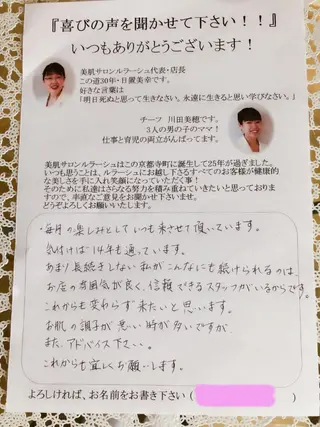 『喜びの声を聞かせて下さい！！』
いつもありがとうございます！
美肌サロンルラーシュ代表・店長
この道30年・日置美幸です。
好きな言葉は
「明日死ぬと思って生きなさい。永遠に生きると思い学びなさい。」
チーフ 川田美穂です。
3人の男の子のママ！
仕事と育児の両立がんばってます。
美肌サロンルラーシュはこの京都寺町に誕生して25年が過ぎました。
いつも思うことは、ルラーシュにお越し下さるすべてのお客様が健康的
な美しさを手に入れ笑顔になっていただく事！
そのために私達はさらなる努力を積み重ねていきたいと思っており
ますので、率直なご意見をお聞かせ下さいませ。
どうぞよろしくお願いいたします。
・毎月の楽しみとしていつも来させて頂いています。
気付けば14年も通っています。
あまり長続きしない私がこんなにも続けられるのは、
お店の雰囲気が良く、信頼できるスタッフがいるからです。
これからも変わらず来たいと思います。
お肌の調子が悪い時が多いですが
また、アドバイス下さい。
これからも宜しくお願いします。
よろしければ、お名前をお書き下さい（　　　）